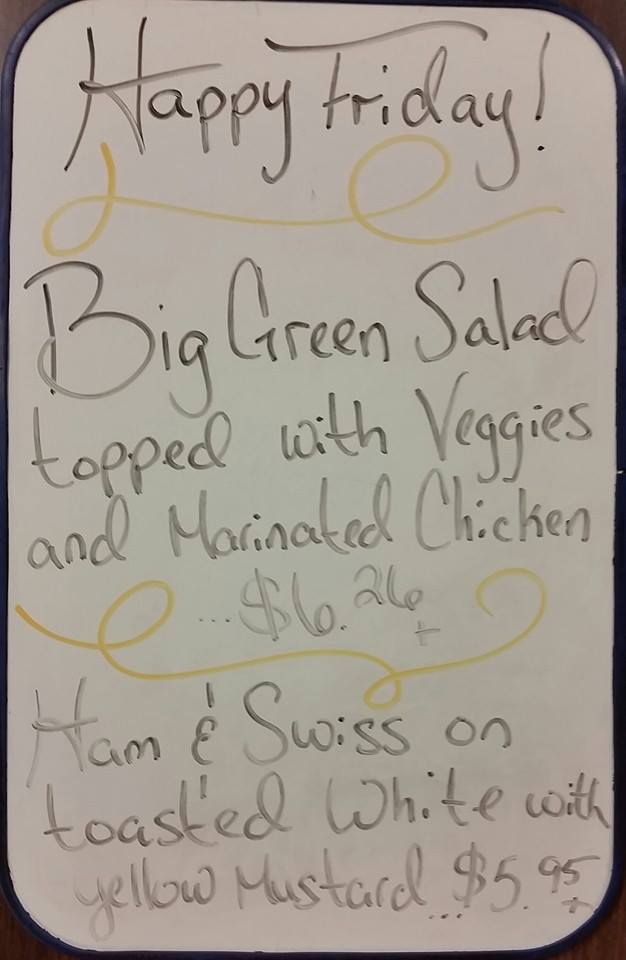 Happy Friday!
Big Green Salad
topped with Veggies
and Marinated Chicken
...$6.26+
Ham & Swiss on
toasted White with
yellow Mustard...$5.95+